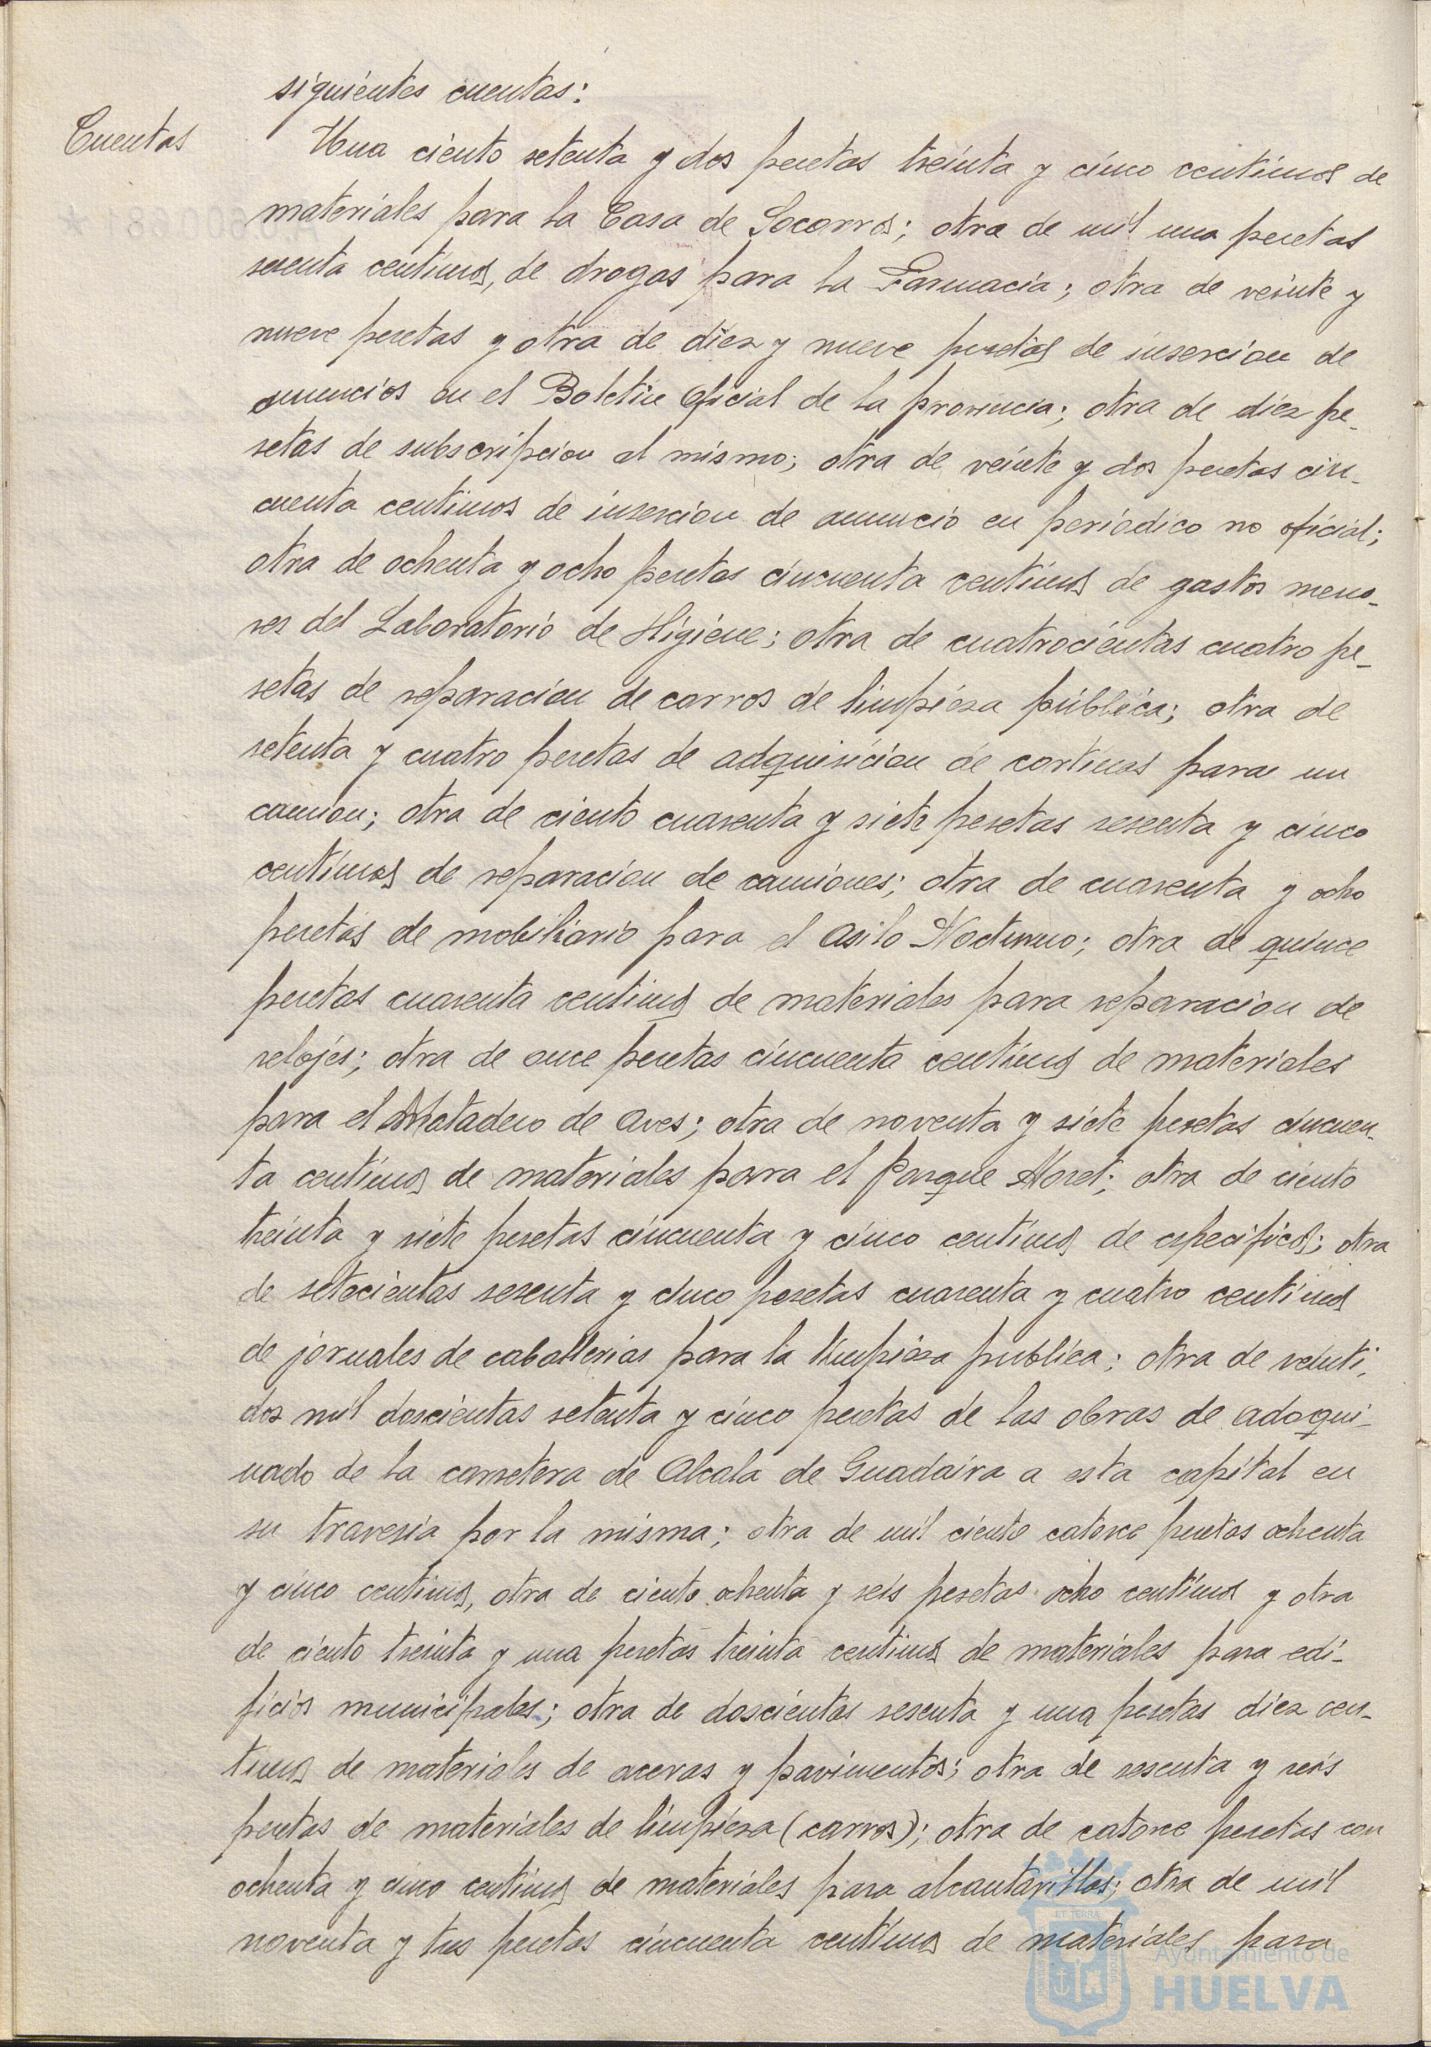 siguientes cuentas:
Cuentas
Una ciento setenta y dos pesetas treinta y cinco centimos de
materiales para la Casa de Socorros; otra de mil una pesetas
sesenta centimos, de drogas para la Farmacia; otra de veinte y
nueve pesetas y otra de diez y nueve pesetas de insercion de
anuncios en el Boletin Oficial de la provincia; otra de diez pe-
setas de subscripcion al mismo; otra de veinte y dos pesetas cin-
cuenta centimos de insercion de anuncio en periodico no oficial;
otra de ochenta y ocho pesetas cincuenta centimos de gastos meno-
res del Laboratorio de Higiene; otra de cuatrocientas cuatro pe-
setas de reparacion de carros de limpieza pública; otra de
setenta y cuatro pesetas de adquisicion de cortinas para un
camion; otra de ciento cuarenta y siete pesetas sesenta y cinco
centimos de reparacion de camiones; otra de cuarenta y ocho
pesetas de mobiliario para el Asilo Nocturno; otra de quince
pesetas cuarenta centimos de materiales para reparacion de
relojes; otra de once pesetas cincuenta centimos de materiales
para el Matadero de Aves; otra de noventa y siete pesetas cincuen-
ta centimos de materiales para el Parque Moret; otra de ciento
treinta y siete pesetas cincuenta y cinco centimos de especificos; otra
de setecientas sesenta y cinco pesetas cuarenta y cuatro centimos
de jornales de caballerias para la limpieza publica; otra de veinti-
dos mil doscientas setenta y cinco pesetas de las obras de adoqui-
nado de la carretera de Alcala de Guadaira a esta capital en
su travesia por la misma; otra de mil ciento catorce pesetas ochenta
y cinco centimos, otra de ciento ochenta y seis pesetas ocho centimos y otra
de ciento treinta y una pesetas treinta centimos de materiales para edi-
ficios municipales; otra de doscientas sesenta y una pesetas diez cen-
timos de materiales de aceras y pavimentos; otra de sesenta y seis
pesetas de materiales de limpieza (carros); otra de catorce pesetas con
ochenta y cinco centimos de materiales para alcantarillas; otra de mil
noventa y tres pesetas cincuenta centimos de materiales para
ET TERRA
Ayuntamiento de
HUELVA